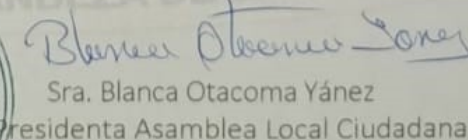 Blanca Otacoma Yánez
Sra. Blanca Otacoma Yánez
Presidenta Asamblea Local Ciudadana